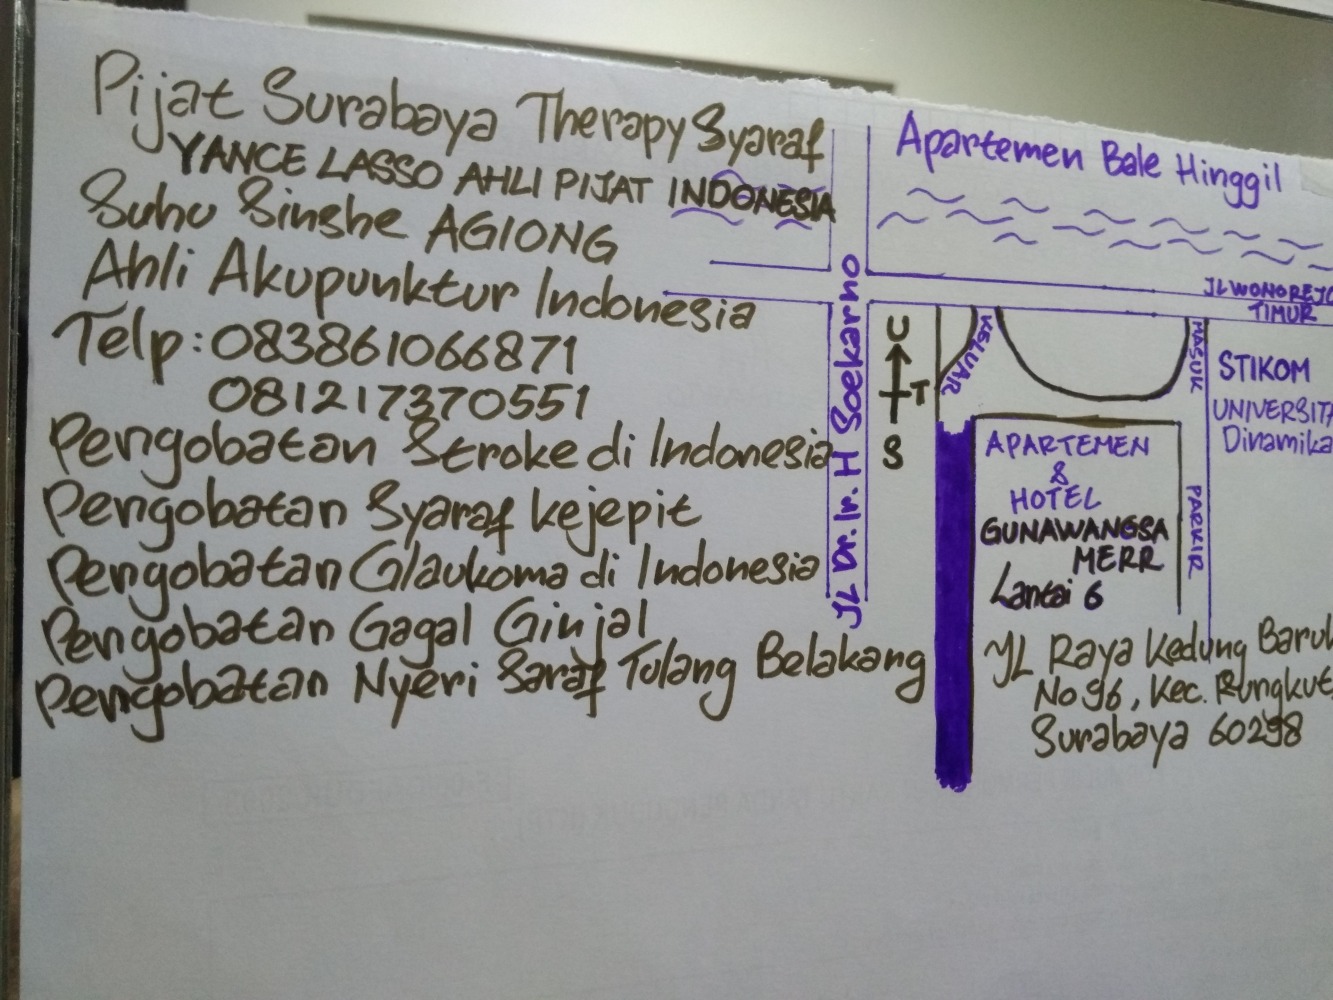 Pijat Surabaya Therapy Syaraf
YANCE LASSO AHLI PIJAT INDONESIA
Suhu Sinshe AGIONG
Ahli Akupunktur Indonesia
Telp: 083861066871
081217370551
Pengobatan Stroke di Indonesia
Pengobatan Syaraf kejepit
Pengobatan Glaukoma di Indonesia
Pengobatan Gagal Ginjal
Pengobatan Nyeri Saraf Tulang Belakang
JL Dr. Ir. H Soekarno
Apartemen Bale Hinggil
JL WONOREJO
TIMUR
U
T
S
KELUAR
MASUK
STIKOM
UNIVERSITA
Dinamika
APARTEMEN
&
HOTEL
GUNAWANGSA
MERR
Lantai 6
PARKIR
JL Raya Kedung Baruk
No 96, Kec. Rungkut
Surabaya 60298